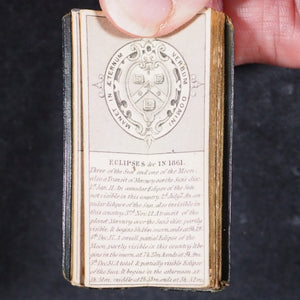 MANET IN ÆTERNUM VERBUM DOMINI
ECLIPSES &c IN 1861.
Three of the Sun and one of the Moon,
also a Transit of Mercury over the Suns disc.
1st Jan. 11. An annular Eclipse of the Sun
not visible in this country. 2d July 7. An an-
nular Eclipse of the Sun, also invisible in
this country. 3d Nov. 12. A transit of the
planet Mercury over the Sun's disc, partly
visible. It begins
4th Dec. 17. A small partial Eclipse of the
Moon, partly visible in this country. It be-
gins in the morn, at
Dec. 31. A total & partially visible Eclipse
of the Sun. It begins in the afternoon at